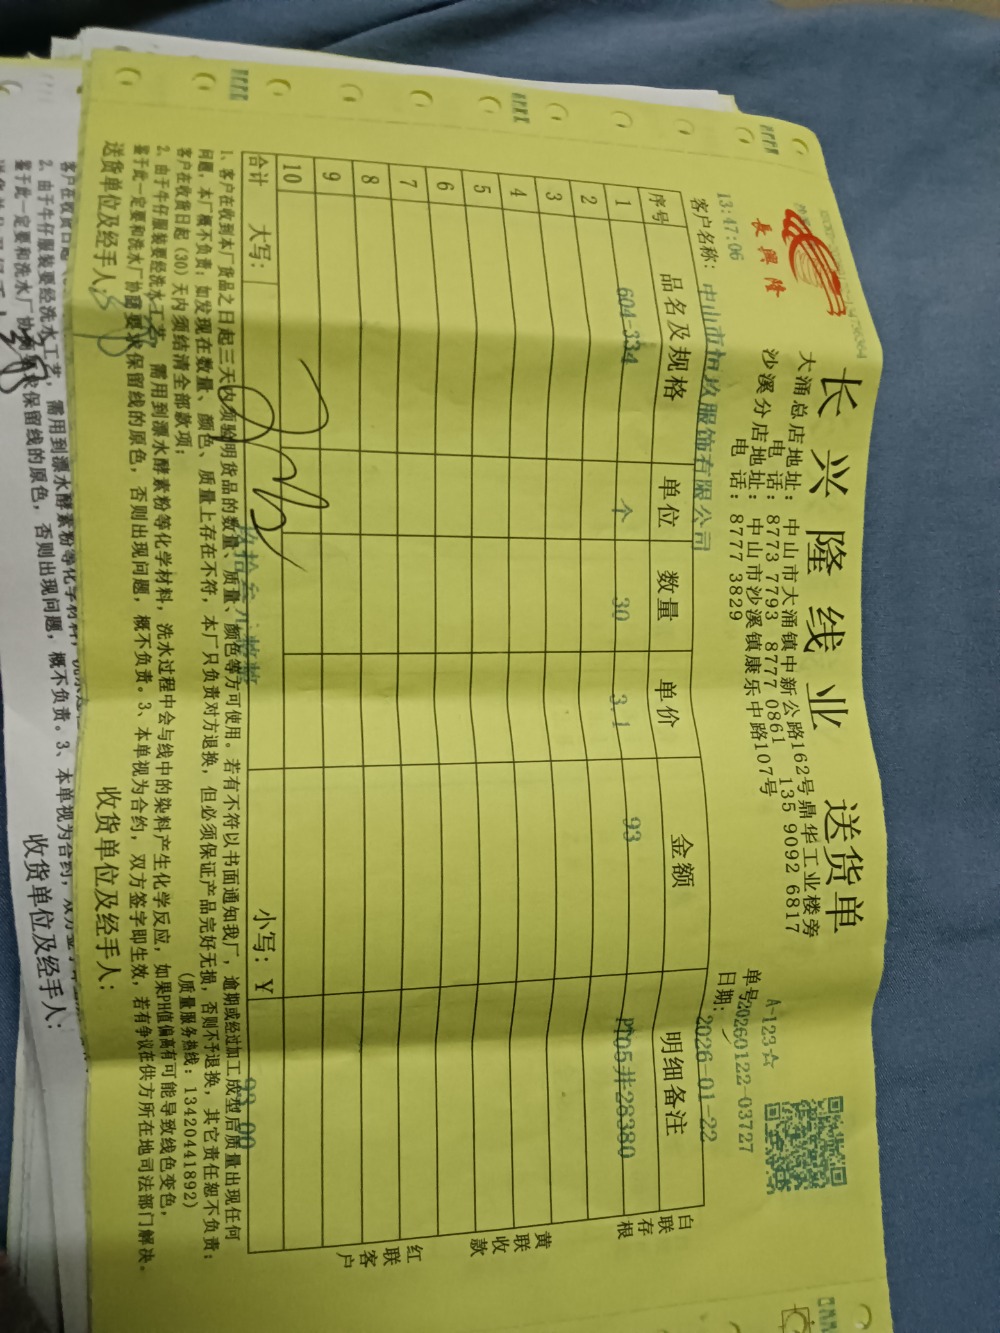 長興隆
长兴隆线业 送货单
大涌总店地址：中山市大涌镇中新公路162号鼎华工业楼旁
电话：8773 7793 8777 0861 135 9092 6817
沙溪分店地址：中山市沙溪镇康乐中路107号
电话：8777 3829
A-123☆
单号20260122-03727
13:47:06
客户名称：中山市恒玖服饰有限公司
日期：2026-01-22
序号 品名及规格 单位 数量 单价 金额 明细备注
1 604-334 个 30 3.1 93 P105井28380
2
3
4
5
6
7
8
9
10
合计 大写：玖拾叁元整 小写：Y 93.00
白联存根
黄联收款
红联客户
1、客户在收到本厂货品之日起三天内须验明货品的数量、质量、颜色等方可使用。若有不符以书面通知我厂，逾期或经过加工成型后质量出现任何
问题，本厂概不负责；如发现在数量、颜色、质量上存在不符，本厂只负责对方退换，但必须保证产品完好无损，否则不予退换，其它责任恕不负责；
客户在收货日起(30)天内须结清全部款项； (质量服务热线：13420441892)
2、由于牛仔服装要经洗水工艺，需用到漂水酵素粉等化学材料，洗水过程中会与线中的染料产生化学反应，如果PH值偏离有可能导致线色变色，
鉴于此一定要和洗水厂协商要求保留线的原色，否则出现问题，概不负责。3、本单视为合约，双方签字即生效，若有争议在供方所在地司法部门解决。
送货单位及经手人： 收货单位及经手人：
2、由于牛仔服装要经洗水工艺，需用到漂水酵素粉等化学材料，
鉴于此一定要和洗水厂协 求保留线的原色，否则出现问题，概不负责。3、本单视为合约，双方签
收货单位及经手人：